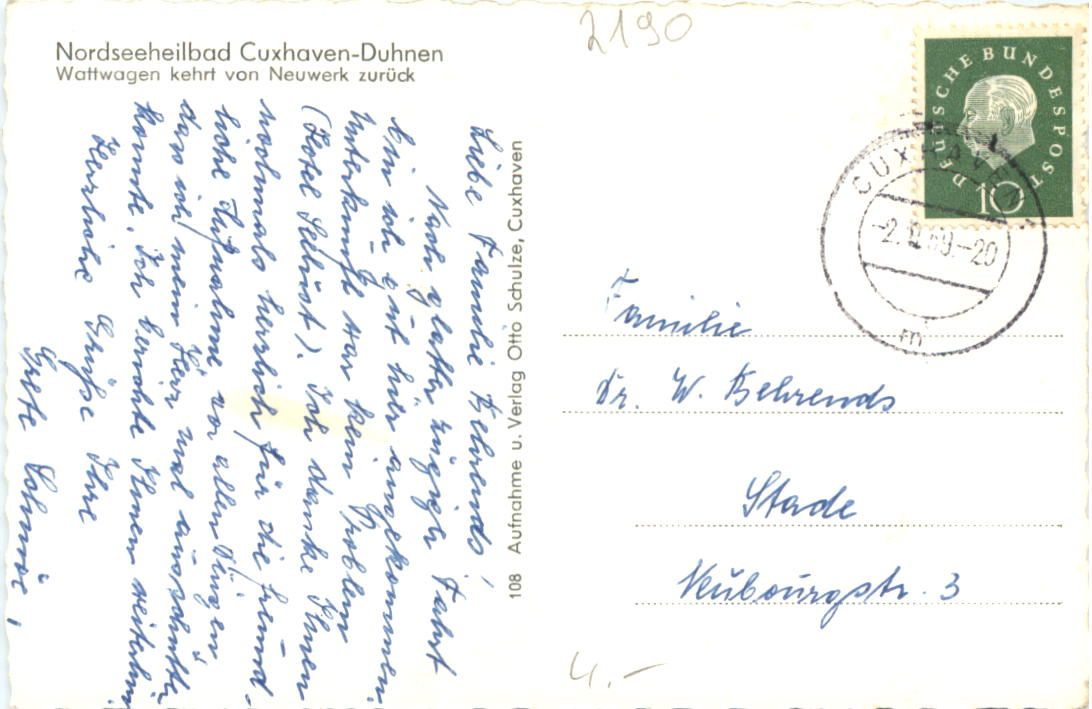 Nordseeheilbad Cuxhaven-Duhnen
Wattwagen kehrt von Neuwerk zurück
2190
DEUTSCHE BUNDESPOST
10
CUXHAVEN
-2.12.59.-20
m
Liebe Familie Behrends!
Nach glatter zügiger Fahrt
bin ich gut hier angekommen.
Unterkunft war kein Problem
(Hotel Seelust). Ich danke Ihnen
nochmals herzlich für die freund-
liche Aufnahme vor allen Dingen
das ich mein Herz mal ausschütten
konnte. Ich berichte Ihnen weiterhin
Herzliche Grüße Ihre
Grete
108 Aufnahme u. Verlag Otto Schulze, Cuxhaven
Familie
Dr. W. Behrends
Stade
Neubourgstr. 3
4.-